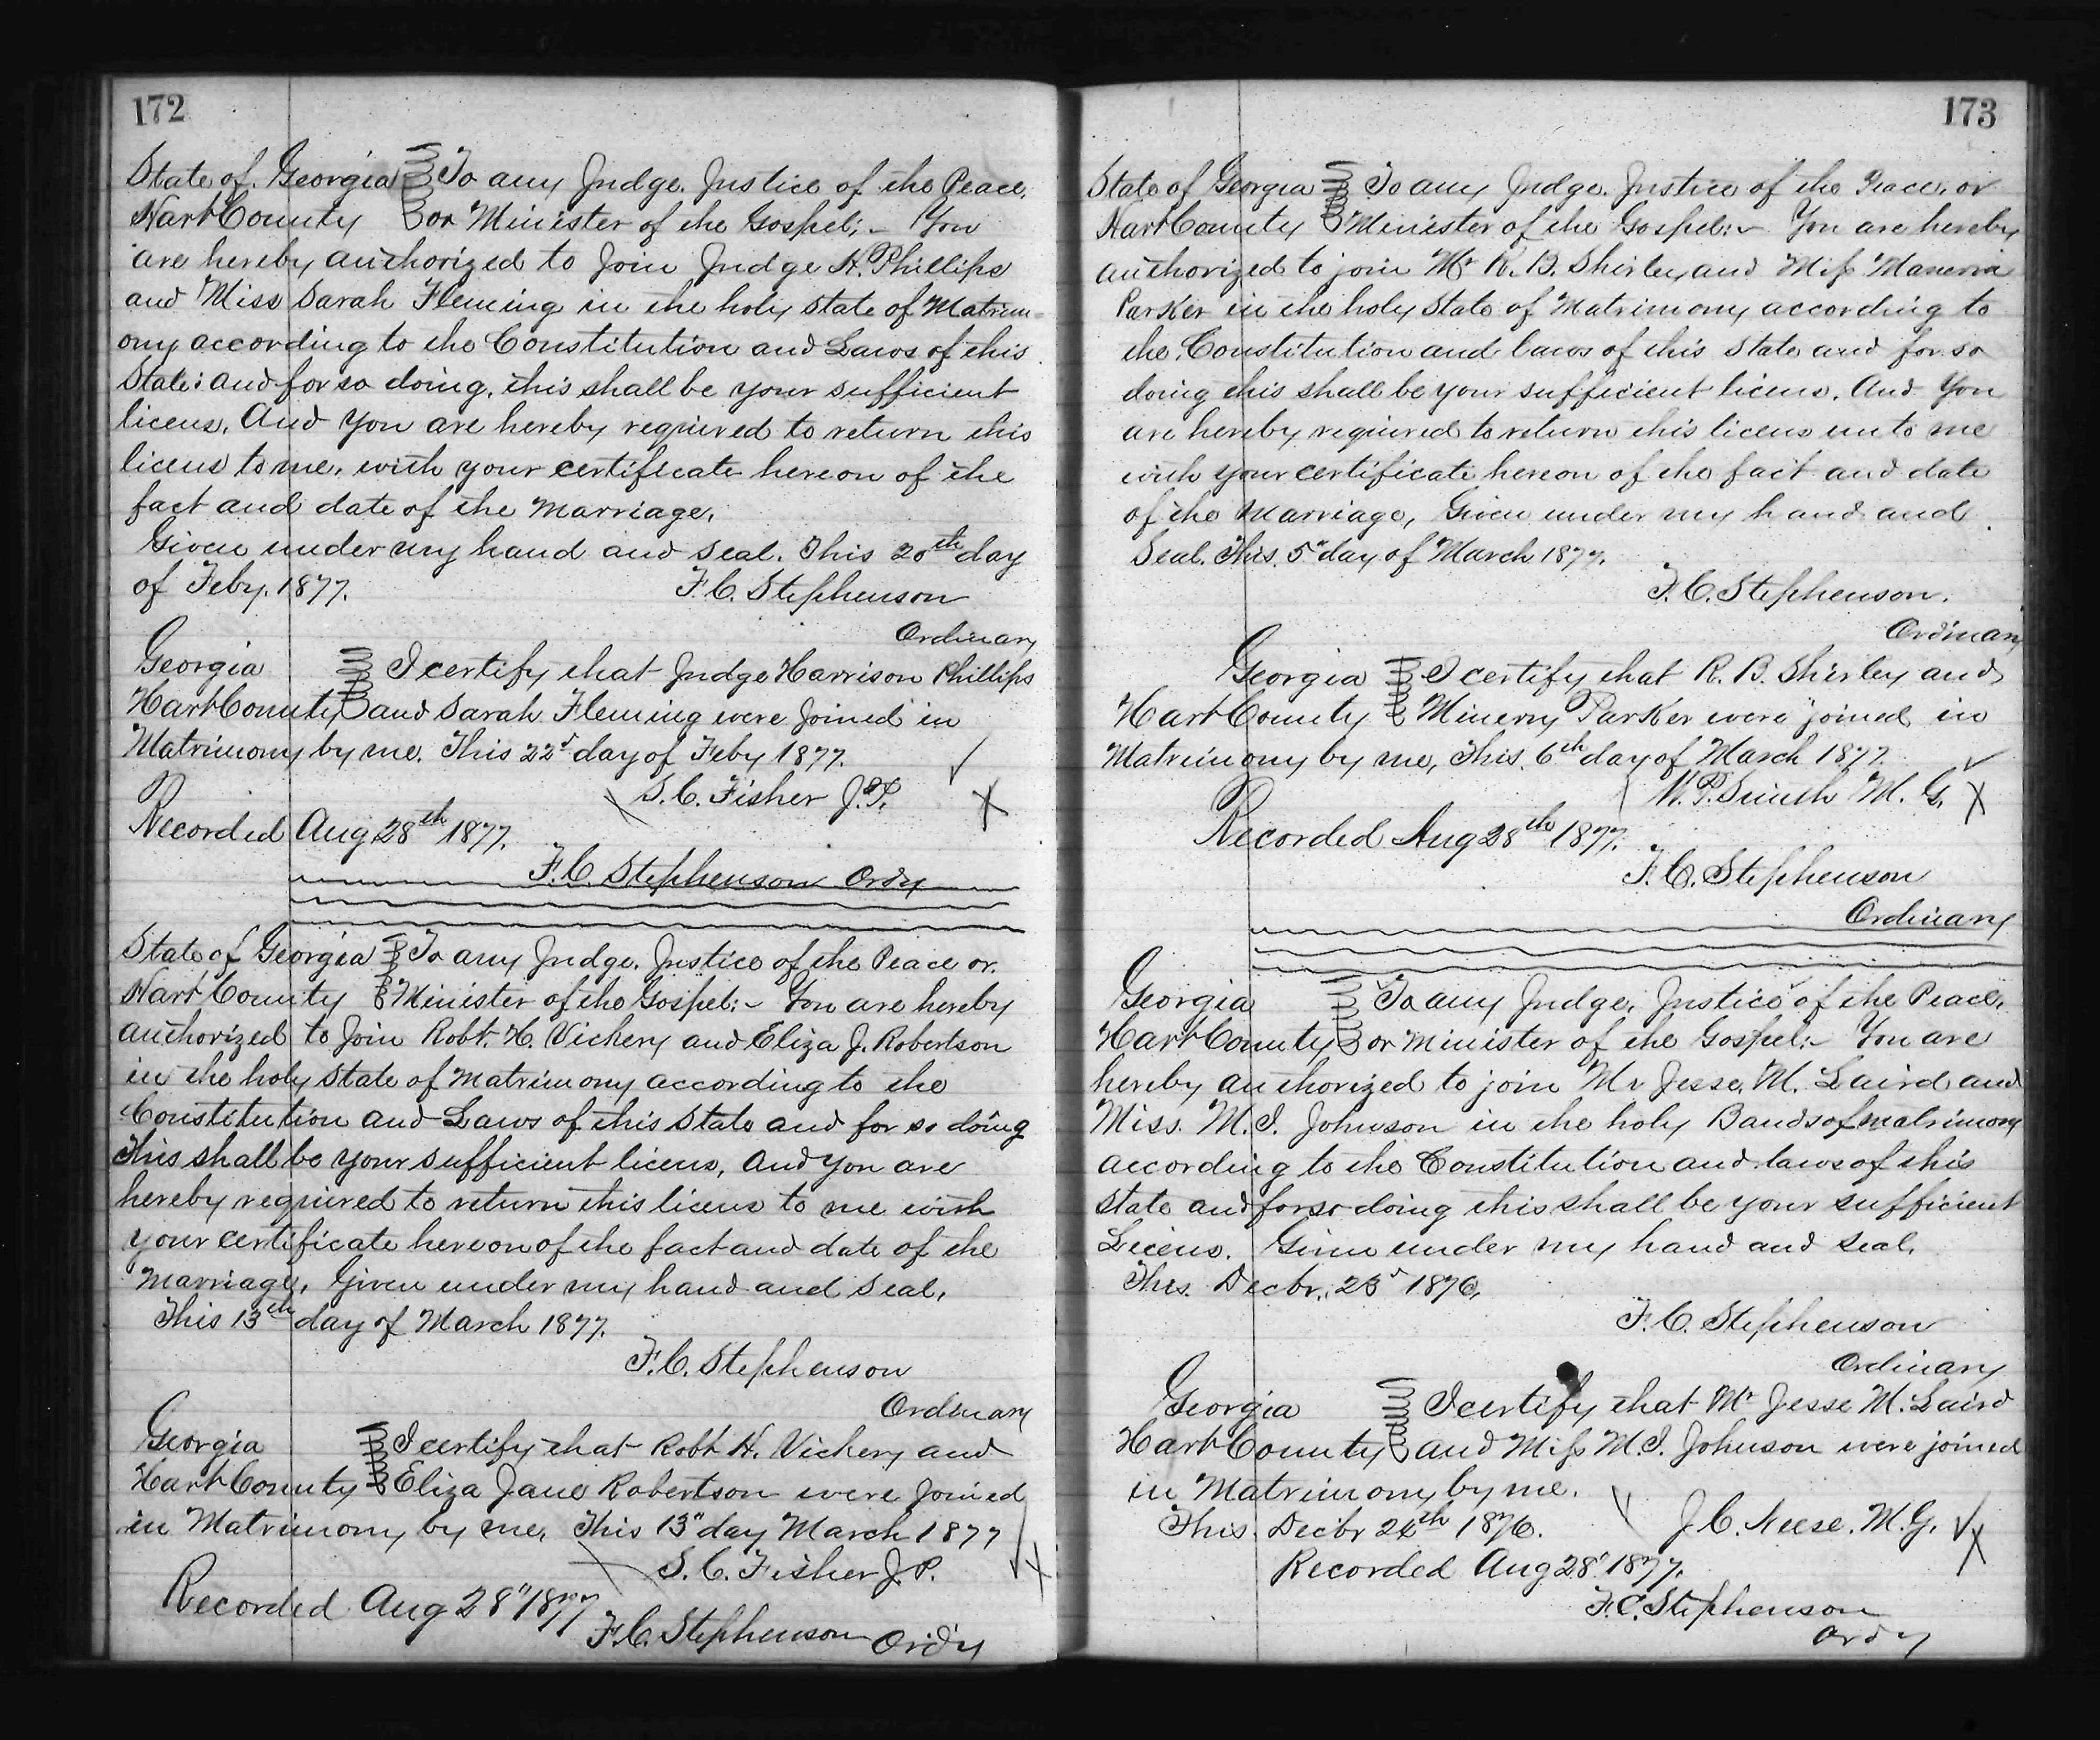 172
State of Georgia To any Judge. Justice of the Peace,
Hart County or Minister of the Gospel; - You
are hereby authorized to Join Judge H. Phillips
and Miss Sarah Fleming in the holy state of Matrim-
ony according to the Constitution and Laws of this
State: and for so doing, this shall be your sufficient
licens. And you are hereby required to return this
licens to me, with your certificate hereon of the
fact and date of the marriage.
Given under my hand and seal. This 20th day
of Feby. 1877. F. C. Stephenson
Ordinary
Georgia I certify that Judge Harrison Phillips
Hart County and Sarah Fleming were Joined in
Matrimony by me. This 22d day of Feby 1877.
S. C. Fisher J.P.
Recorded Aug 28th 1877.
F. C. Stephenson Ordy
State of Georgia To any Judge. Justice of the Peace or.
Hart County Minister of the Gospel: - You are hereby
authorized to Join Robt. H. Vickery and Eliza J. Robertson
in the holy state of matrimony according to the
Constitution and Laws of this State and for so doing
this shall be your sufficient licens, and you are
hereby required to return this licens to me with
your certificate hereon of the fact and date of the
marriage. Given under my hand and seal.
This 13th day of March 1877.
F. C. Stephenson
Ordinary
Georgia I certify that Robt H. Vickery and
Hart County Eliza Jane Robertson were Joined
in Matrimony by me, This 13" day March 1877
S. C. Fisher J. P.
Recorded Aug 28" 1877
F. C. Stephenson Ordy
173
State of Georgia To any Judge. Justice of the Peace, or
Hart County Minister of the Gospel: - You are hereby
authorized to join Mr R. B. Shirley, and Miss Manerva
Parker in the holy state of Matrimony according to
the Constitution and laws of this State and for so
doing this shall be your sufficient licens. And you
are hereby required to return this licens unto me
with your certificate hereon of the fact and date
of the marriage, Given under my hand and
Seal. This. 5" day of March 1877.
F. C. Stephenson.
Ordinary
Georgia I certify that R. B. Shirley and
Hart County Minervy Parker were joined in
Matrimony by me, This. 6th day of March 1877.
W. P. Smith M. G.
Recorded Aug 28th 1877.
F. C. Stephenson
Ordinary
Georgia To any Judge, Justice of the Peace,
Hart County or minister of the Gospel: - You are
hereby authorized to join Mr Jesse. M. Laird and
Miss. M. I. Johnson in the holy Bands of matrimony
according to the Constitution and laws of this
state and for so doing this shall be your sufficient
Licens. Given under my hand and seal,
This. Decbr. 23d 1876,
F. C. Stephenson
Ordinary
Georgia I certify that Mr Jesse M. Laird
Hart County and Miss M. I. Johnson were joined
in Matrimony by me.
This. Decbr 24th 1876. J. C. Neese. M. G.
Recorded Aug 28" 1877.
F. C. Stephenson
Ordy